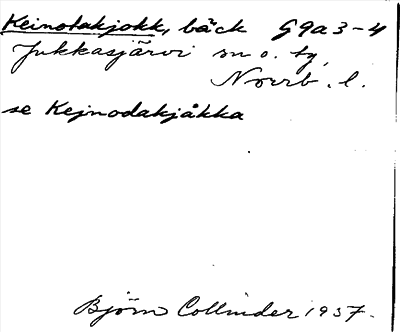 Keinotakjokk, bäck G9a3-4
Jukkasjärvi sn o. tg,
Norrb. l.
se Kejnodakjåkka
Björn Collinder 1937.